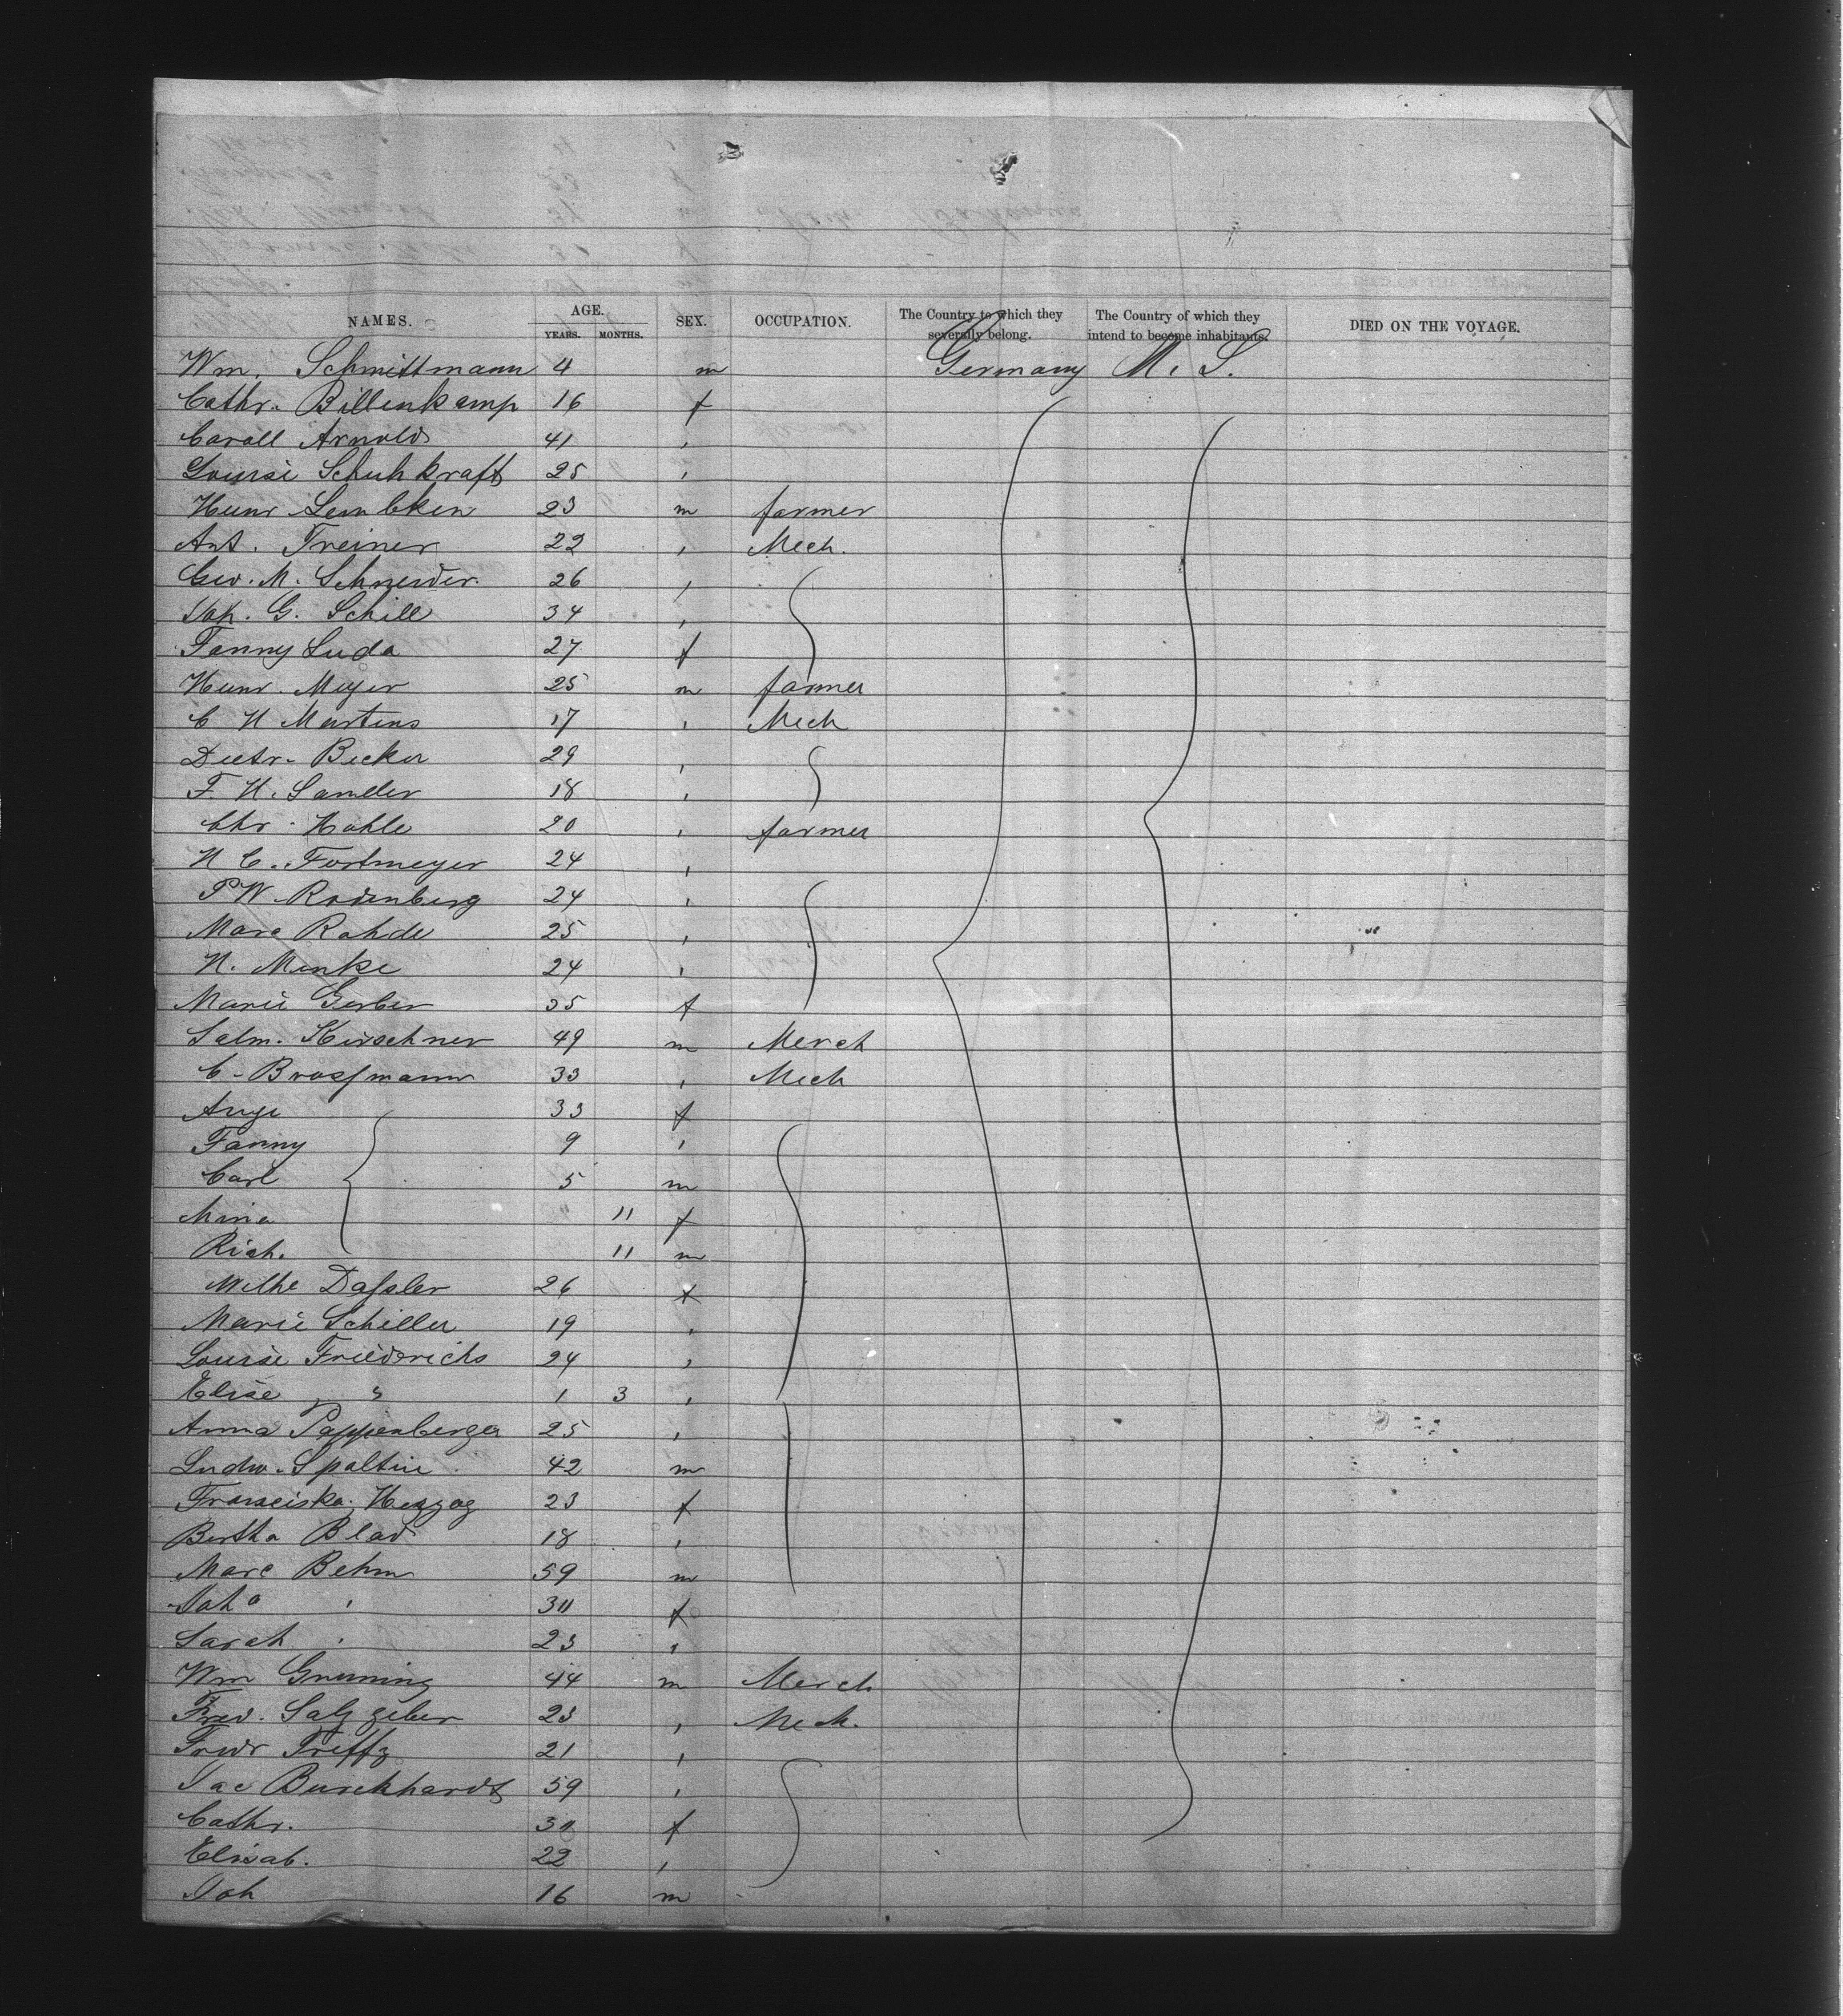 NAMES. AGE. YEARS. MONTHS. SEX. OCCUPATION. The Country to which they severally belong. The Country of which they intend to become inhabitants. DIED ON THE VOYAGE.
Wm. Schmittmann 4 m Germany U. S.
Cathr. Billenkamp 16 f
Caroll Arnold 41 "
Louise Schuhkraft 25 "
Heinr Lembken 23 m farmer
Ant. Treiner 22 " Mech.
Geo. M. Schneider 26 "
Joh. G. Schill 34 "
Fanny Luda 27 f
Heinr. Meyer 25 m farmer
C H Martens 17 " Mech
Dietr. Becker 29 "
F. H. Sander 18 "
Chr. Kohle 20 " farmer
H C. Fortmeyer 24 "
P W Rodenberg 24 "
Marc Rohde 25 "
H. Menke 24 "
Marie Gerber 35 f
Salm. Kirschner 49 m Merch
C. Brossmann 33 " Mech
Auge 33 f
Fanny 9 "
Carl 5 m
Mina 11 f
Rich. 11 m
Wilhe Dassler 26 f
Marie Schiller 19 "
Louise Friederichs 24 "
Elise " 1 3 "
Anna Pappenberger 25 "
Ludw. Spaltin 42 m
Franciska Herzog 23 f
Bertha Blad 18 "
Marc Behm 59 m
Joha " 30 f
Sarah " 23 "
Wm Gruning 44 m Merch
Fred. Salzgeber 23 " Mech.
Friedr Treffz 21 "
Jac Burckhardt 59 "
Cathr. 30 f
Elisab. 22 "
Joh 16 m